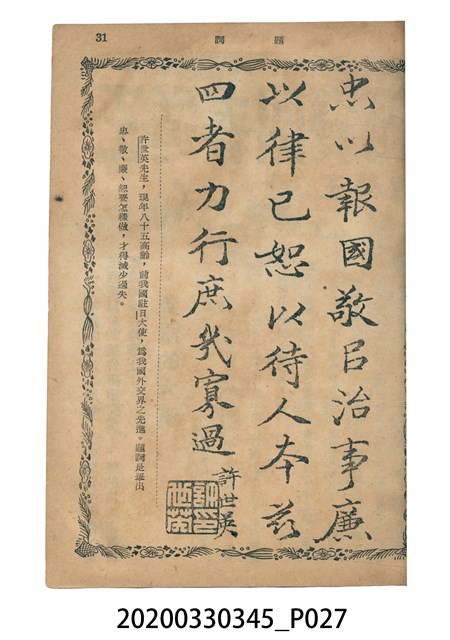 31
題詞
忠以報國敬㠯治事廉
以律己恕以待人本茲
四者力行庶幾寡過
許世英
許世英先生,現年八十五高齡,前我國駐日大使,為我國外交界之先進。題詞是舉出
忠、敬、廉、恕要怎樣做,才得減少過失。
20200330345_P027